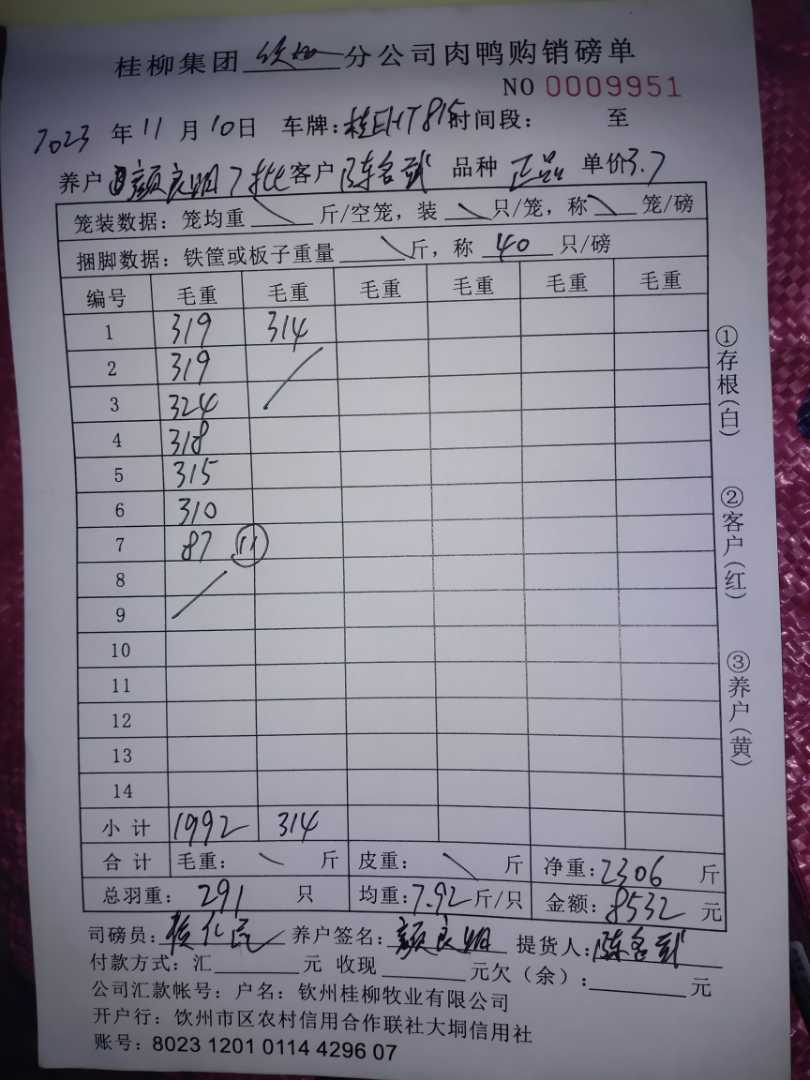 桂柳集团 钦州 分公司肉鸭购销磅单
NO 0009951
2023 年 11 月 10 日 车牌: 桂EHT815 时间段: 至
养户 颜良明7批 客户 陈名武 品种 正品 单价 3.7
笼装数据: 笼均重 \ 斤/空笼, 装 \ 只/笼, 称 \ 笼/磅
捆脚数据: 铁筐或板子重量 \ 斤, 称 40 只/磅
编号 毛重 毛重 毛重 毛重 毛重 毛重
1 319 314
2 319
3 324
4 318
5 315
6 310
7 87 ⑪
8
9
10
11
12
13
14
小计 1992 314
合计 毛重: \ 斤 皮重: \ 斤 净重: 2306 斤
总羽重: 291 只 均重: 7.92 斤/只 金额: 8532 元
司磅员: 养户签名: 颜良明 提货人: 陈名武
付款方式: 汇 元 收现 元欠(余): 元
公司汇款帐号: 户名: 钦州桂柳牧业有限公司
开户行: 钦州市区农村信用合作联社大垌信用社
账号: 8023 1201 0114 4296 07
①存根(白)
②客户(红)
③养户(黄)